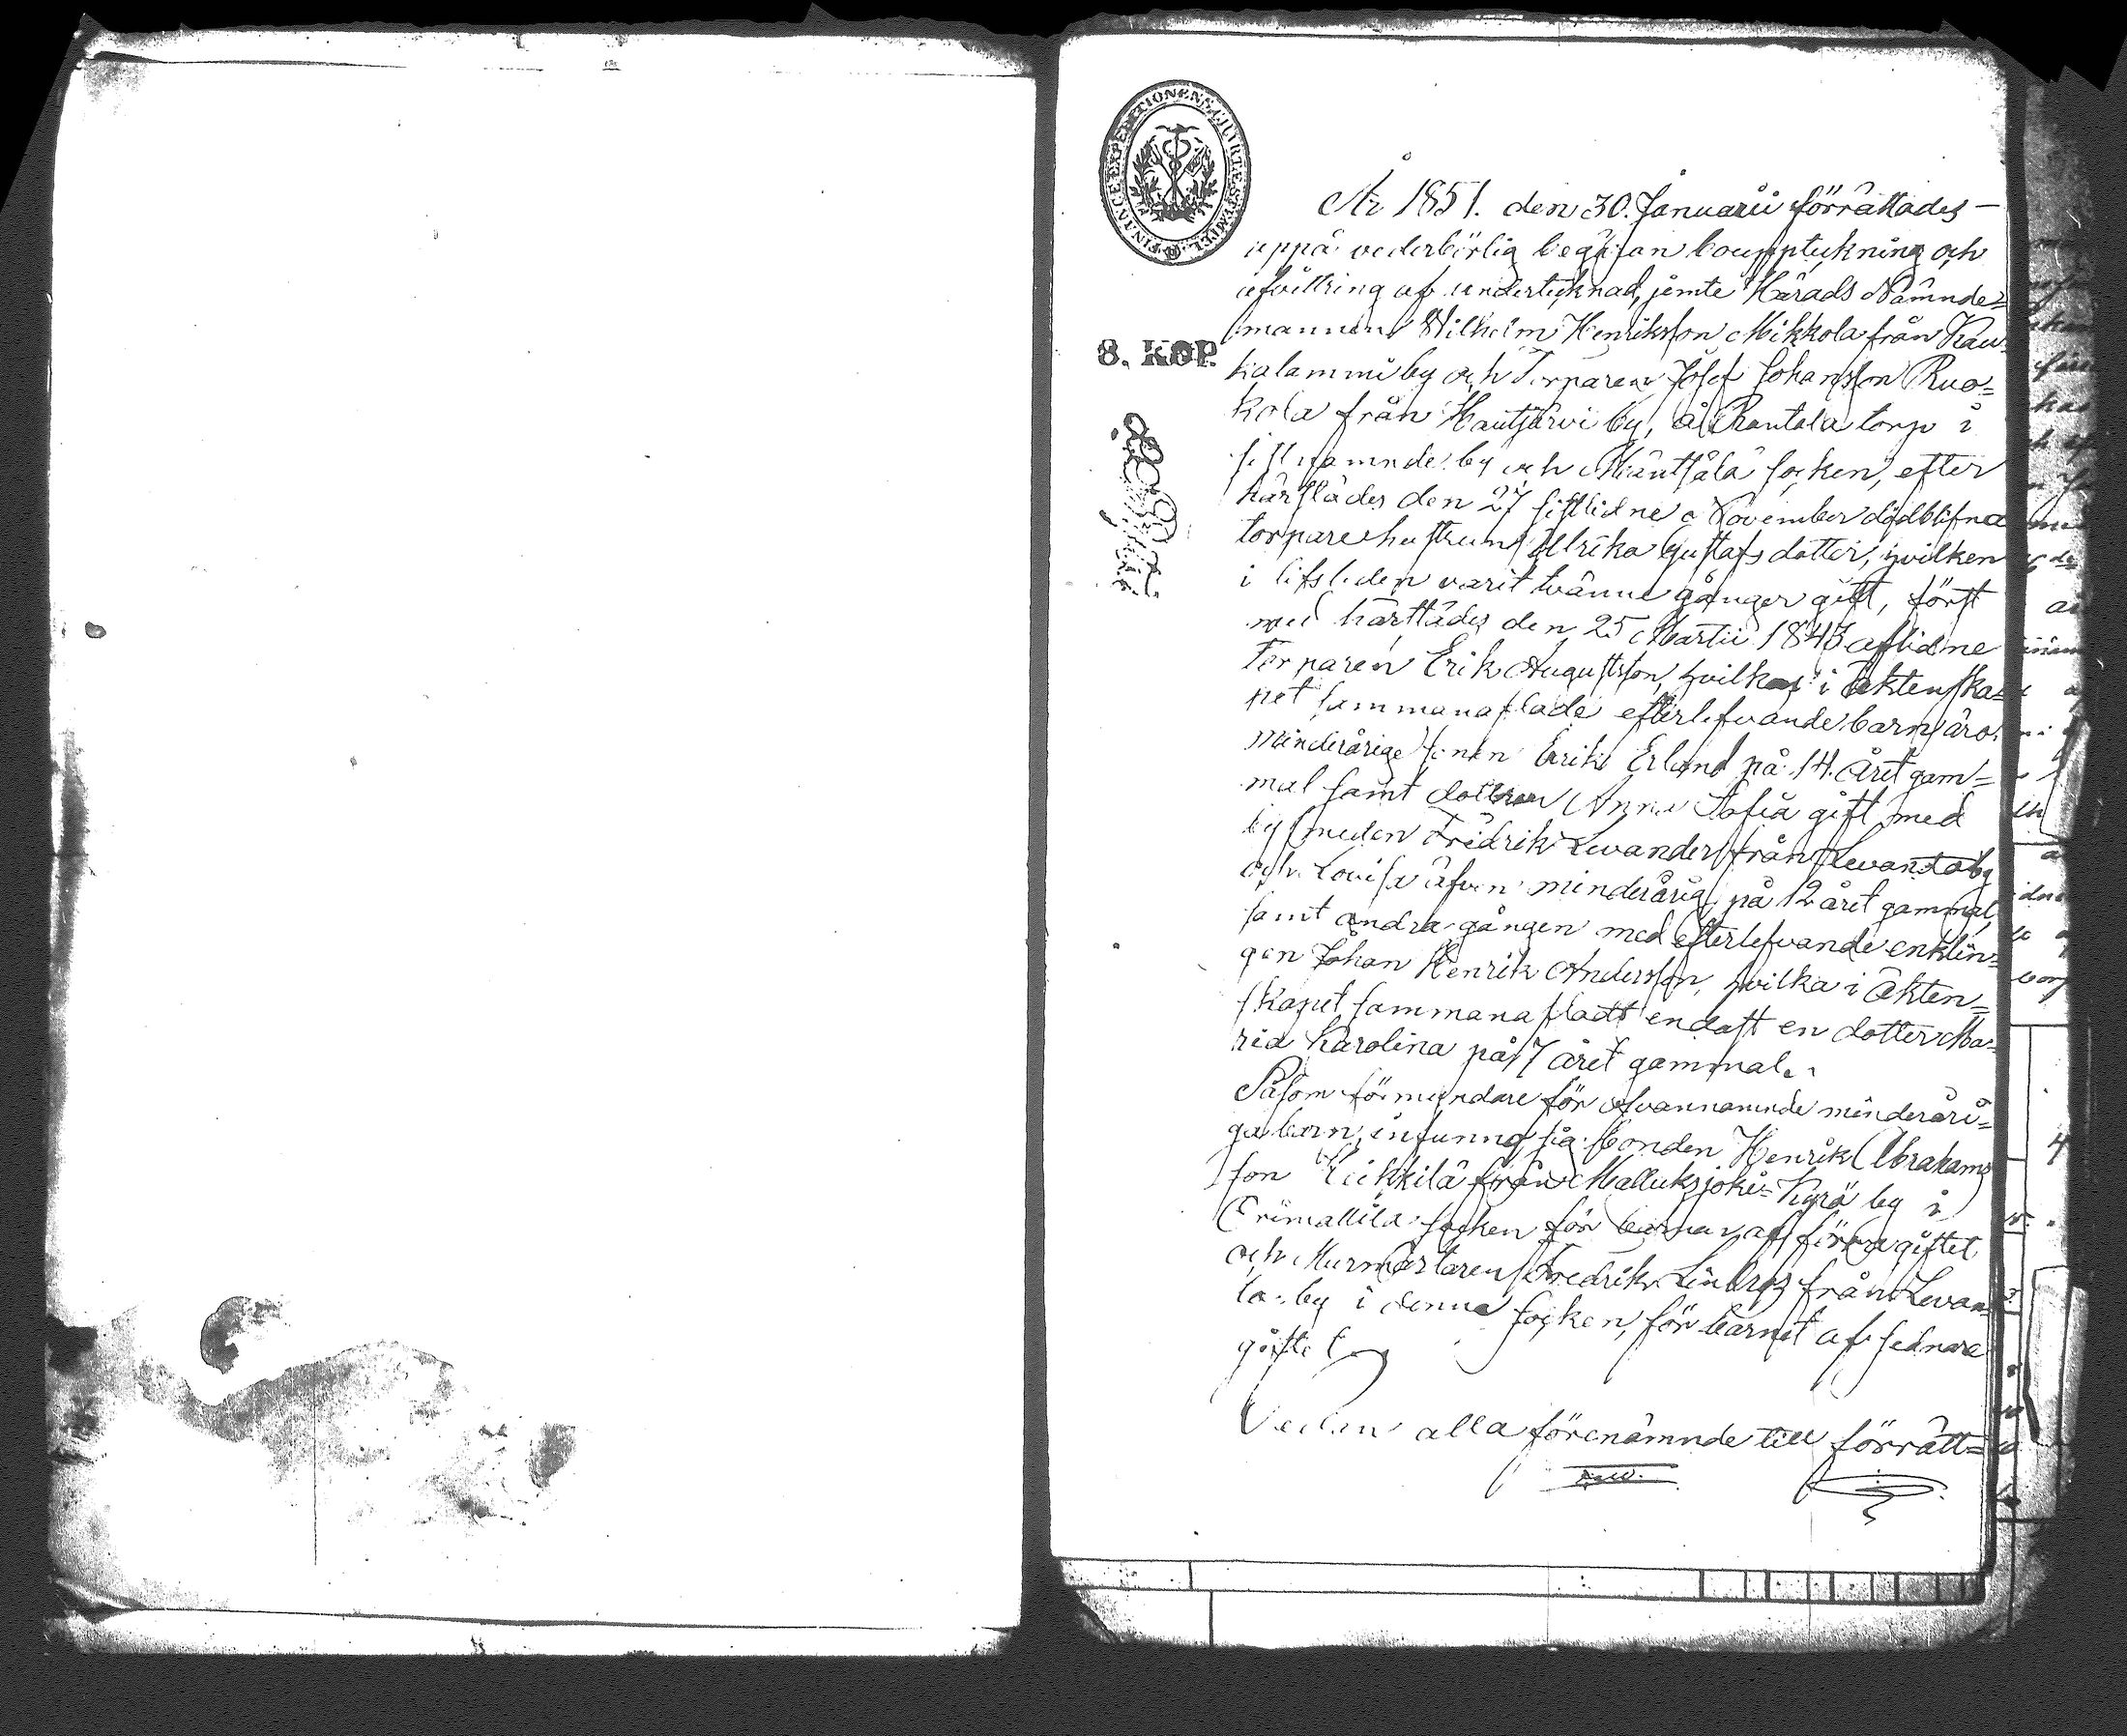 FINANCE EXPEDITIONENS CHARTÆ STEMPEL
8. KOP.
År 1851. den 30. Januarii förrättades
uppå vederbörlig begäran bouppteckning och
afvittring af undertecknad, jemte Härads Nämnde=
mannen Wilhelm Henriksson Mikkola från Kau=
kalammi by och Torparen Josef Johansson Ruo=
kola från Hautjärvi by, å Rantala torp i
sistnämnde by och Mäntsälä socken, efter
härstädes den 27 sistlidne November dödblifna
torparehustrun Ulrika Gustafsdotter, hvilken
i lifstiden varit tvänne gånger gift, först
med härstädes den 25 Martii 1843 aflidne
Torparen Erik Augustsson, hvilkas i äktenska=
pet sammanaflade efterlefvande barn äro:
minderårige sonen Erik Erland på 14. året gam=
mal samt dottren Anna Sofia gift med
bysmeden Fredrik Levander från Levanto by
och Lovisa äfven minderårig, på 12 året gammal,
samt andra gången med efterlefvande enklin=
gen Johan Henrik Andersson, hvilka i äkten=
skapet sammanafladt endast en dotter Ma=
ria Karolina på 7 året gammal.
Såsom förmyndare för ofvannämnde minderåri=
ga barn, infunno sig bonden Henrik Abrahams
son Heikkilä från Mallusjoki=Kyrö by i
Orimattila socken för barnen af förra giftet
och Murmästaren Fredrik Lindroz från Levan=
ta by i denna socken, för barnet af sednare
giftet
Sedan alla förenämnde till förrätt=